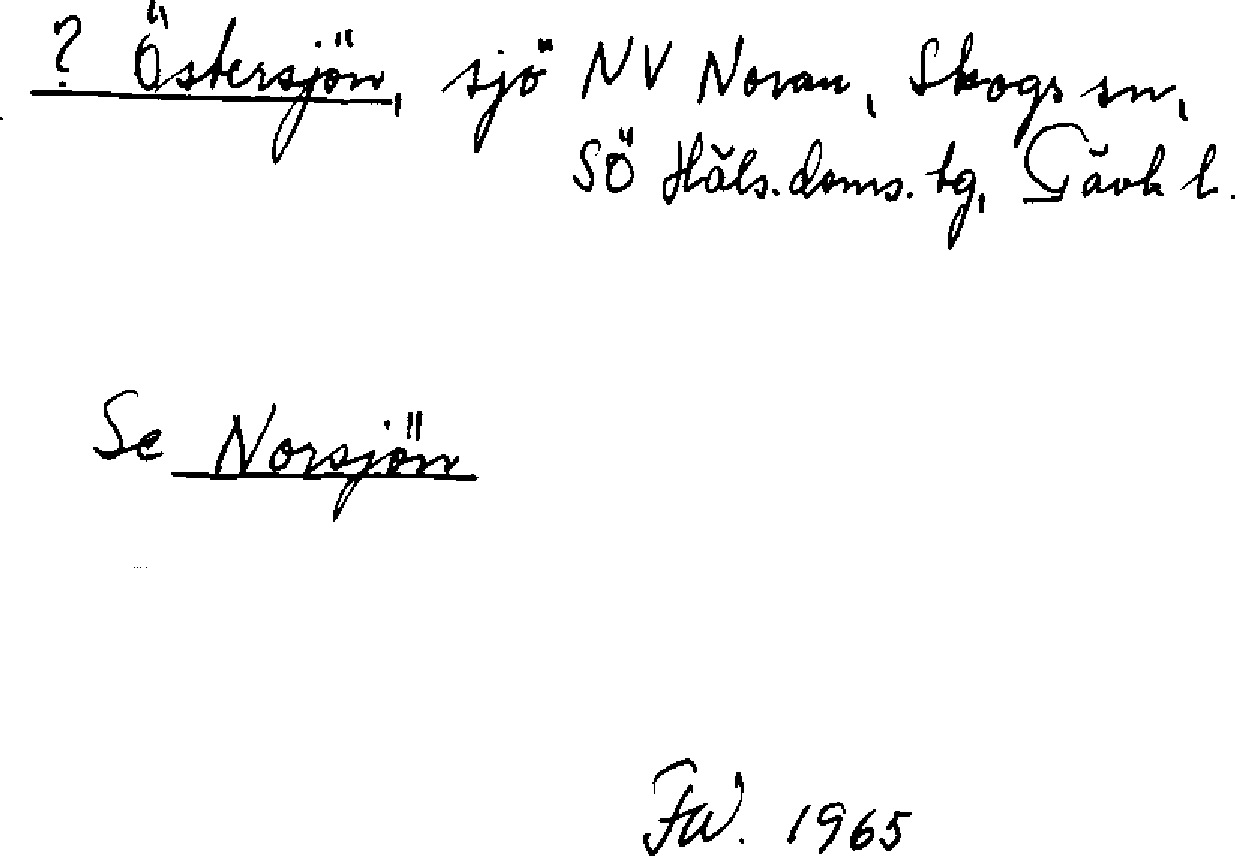 ? Östersjön, sjö NV Noran, Skogs sn,
SÖ Häls. doms. tg, Gävb l.
Se Norsjön
1965